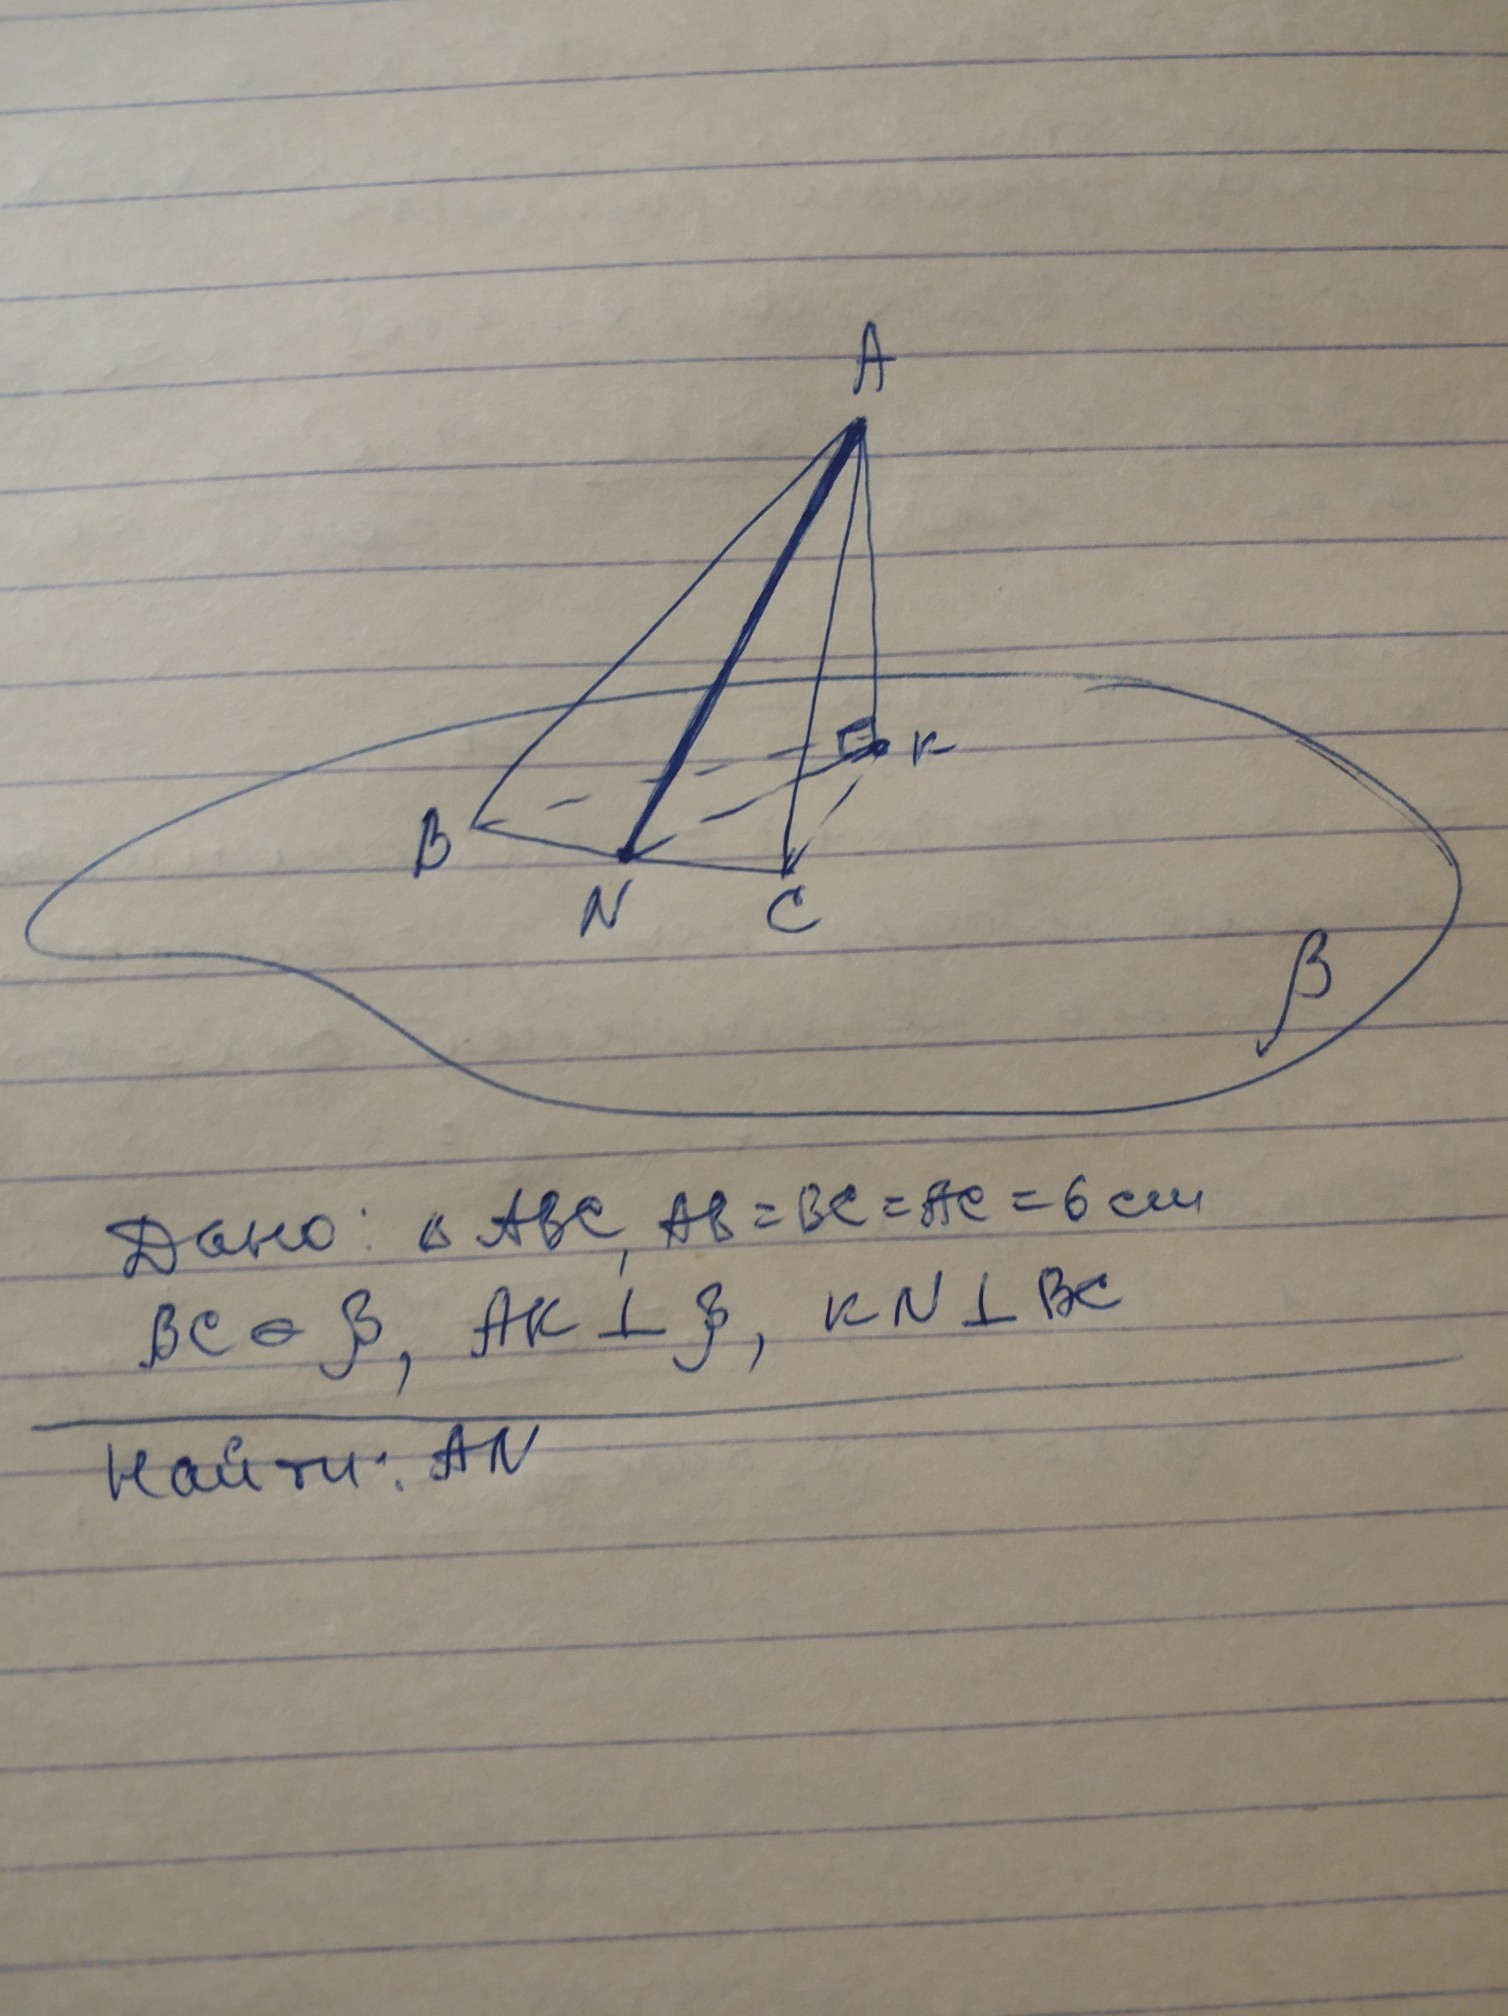 A
K
B
N
C
β
Дано: △ ABC, AB = BC = AC = 6 см
BC ∈ β, AK ⊥ β, KN ⊥ BC
Найти: AN